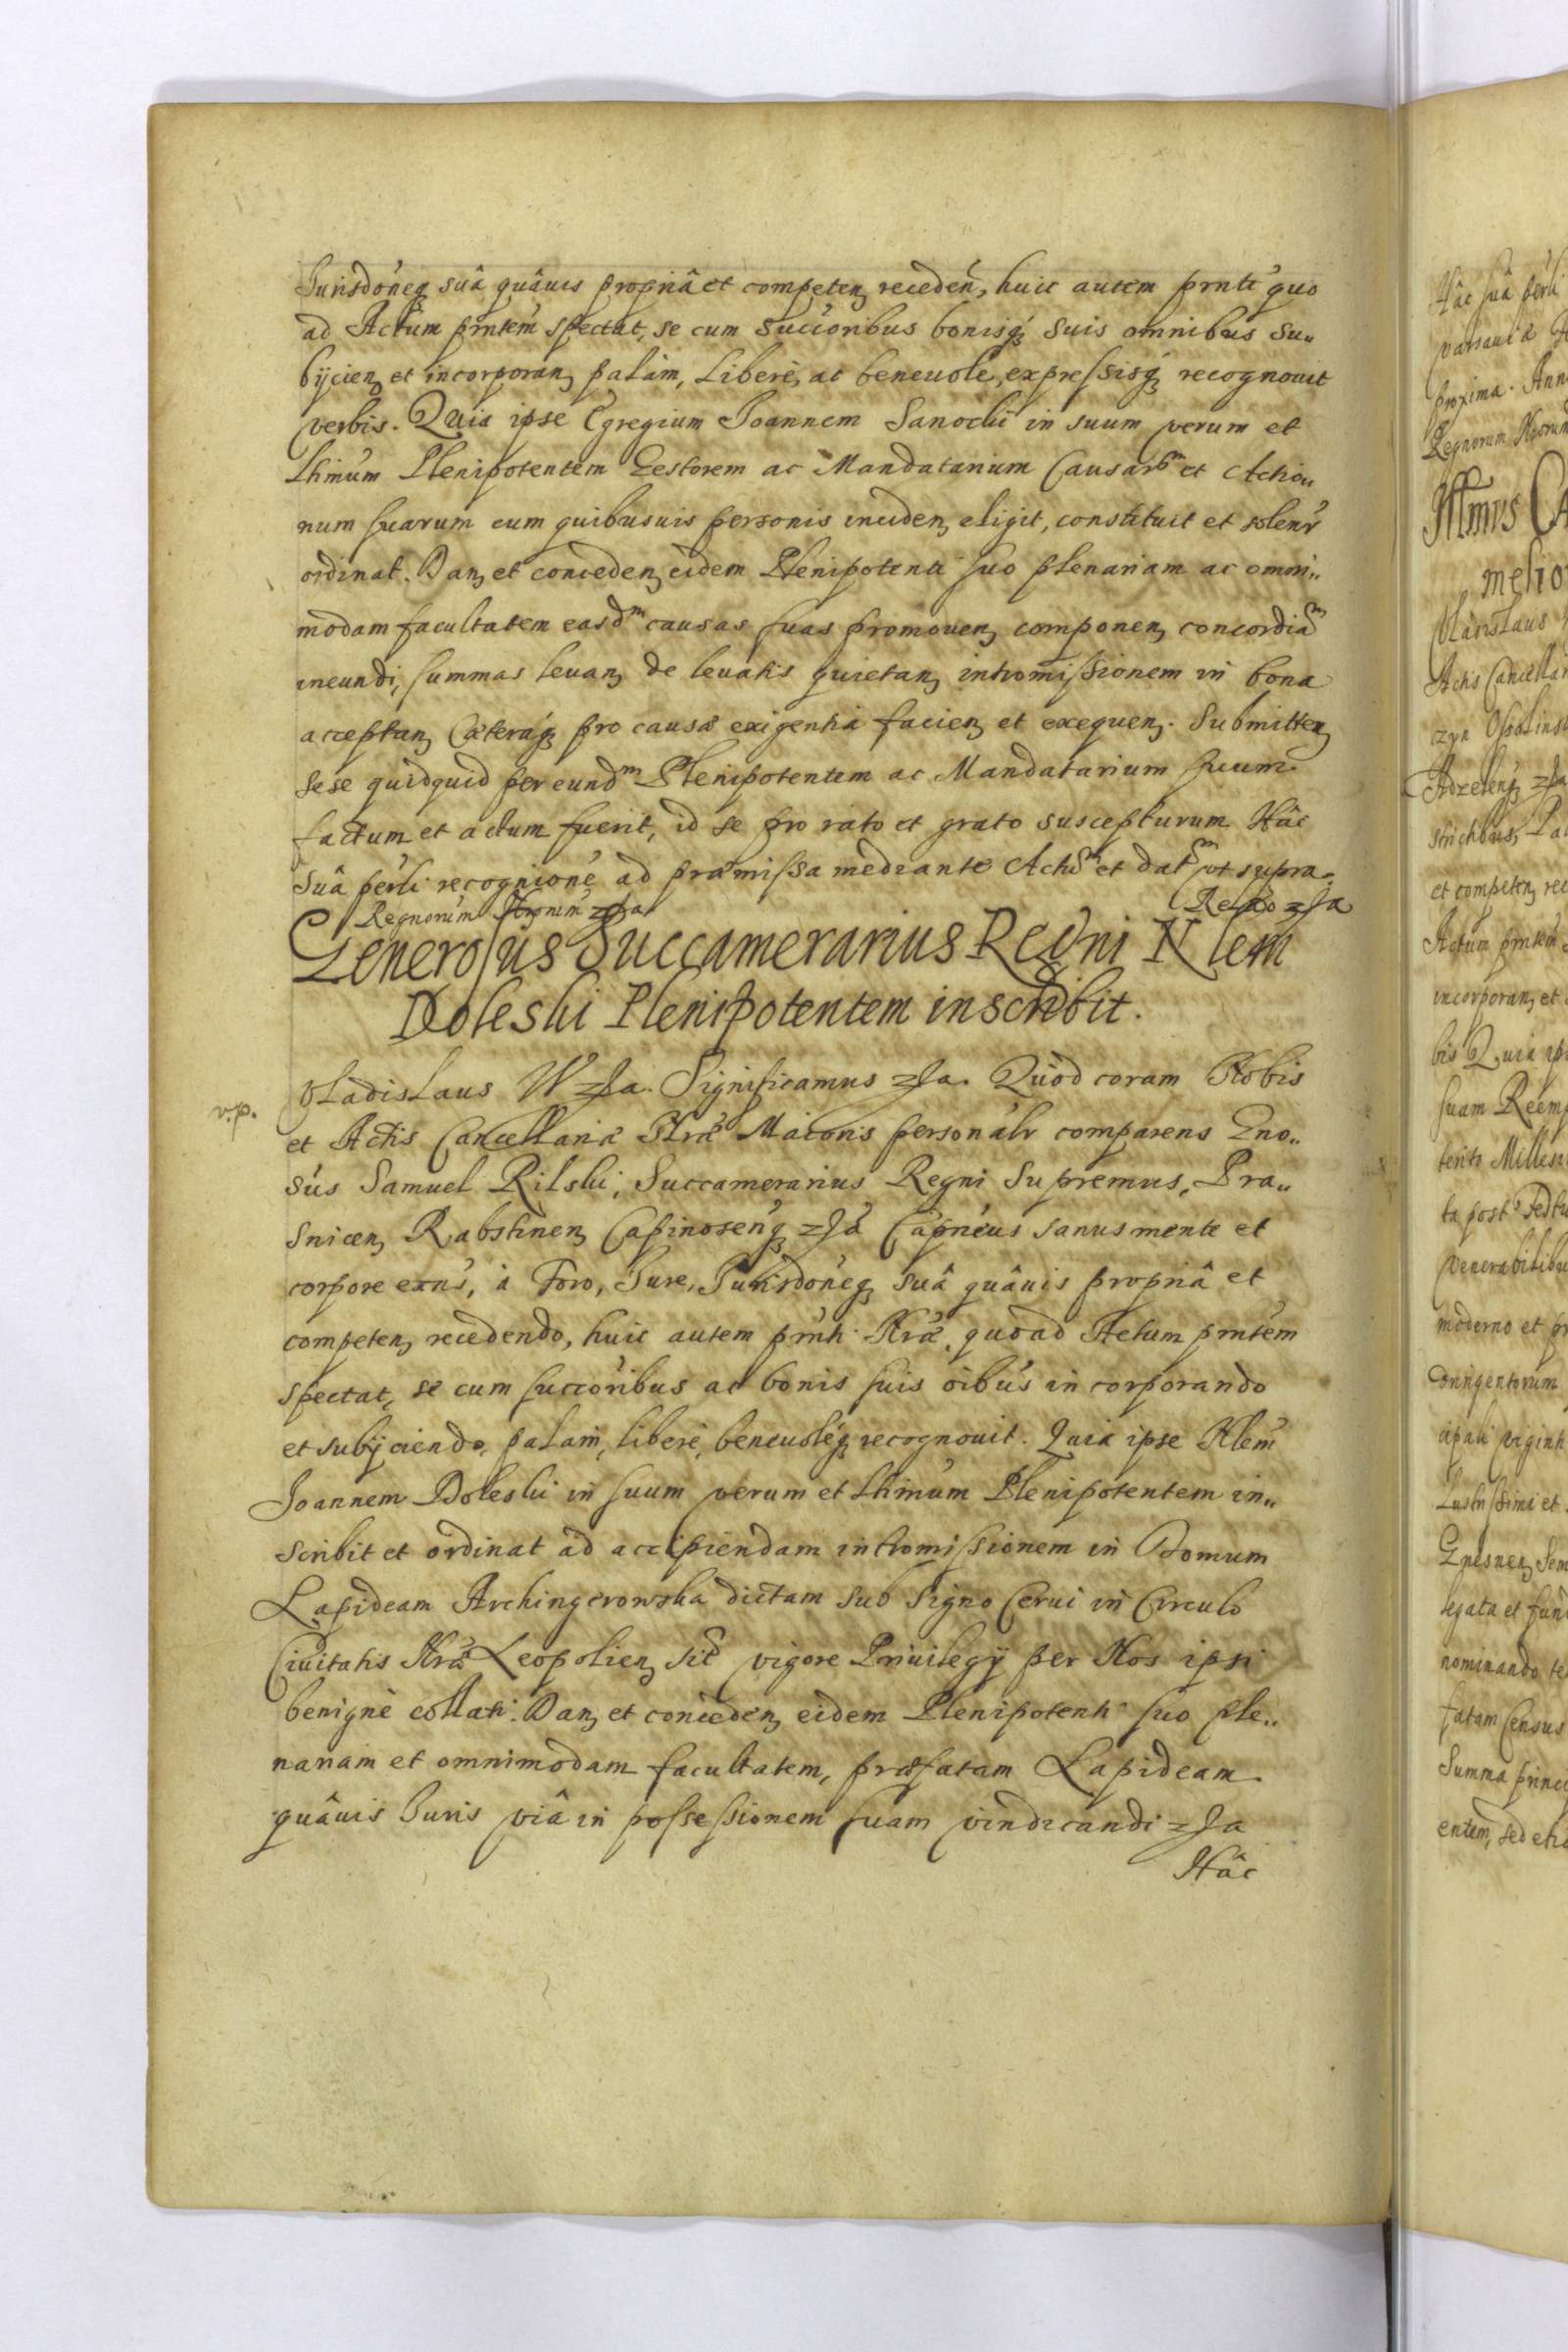 Jurisdoneq suâ quâuis propriâ et competen receden, huic autem prnti quo
ad Actum prntem spectat, se cum succoribus bonisq suis omnibus su„
bÿcien et incorporan palàm, Liberè, ac beneuole, expressisq recognouit
verbis. Quia ipse Egregium Joannem Sanocki in suum verum et
Lhimum Plenipotentem Gestorem ac Mandatarium Causarm et Actio„
num suarum cum quibusuis personis inciden eligit, constituit et solenr
ordinat. Dan et conceden eidem Plenipotenti suo plenariam ac omni„
modam facultatem easdm causas suas promouen componen concordiam
ineundi, summas leuan de leuatis quietan intromissionem in bona
acceptan Cæteraq pro causæ exigentia facien et exequen. Submitten
sese quidquid per eundm Plenipotentem ac Mandatarium suum
factum et actum fuerit, id se pro rato et grato suscepturum Hâc
Suâ perli recognione ad præmissa mediante Actum et datm ut supra.
Regnorum Nrorum
Relio
Generosus Succamerarius Regni Nlem
Doleski Plenipotentem inscribit.
v.p.
Vladislaus W Significamus Quòd coram Nobis
et Actis Cancellariæ Nræ Maioris personalr comparens Gno„
sus Samuel Rilski, Succamerarius Regni Supremus, Pra„
snicen Rabstinen Capinosenq Capneus sanus mente et
corpore exns, à Foro, Jure, Jurisdoneq suâ quâuis propriâ et
competen recedendo, huic autem prnti Nræ, quoad Actum prntem
spectat, se cum succoribus ac bonis suis oibus incorporando
et subÿciendo, palam, liberè, beneuolèq recognouit. Quia ipse Nlem
Joannem Doleski in suum verum et Lhimum Plenipotentem in„
scribit et ordinat ad accipiendam intromissionem in Domum
Lapideam Archingerowska dictam sub Signo Cerui in Circulo
Ciuitatis Nræ Leopolien sitm vigore Priuilegÿ per Nos ipsi
benignè collati. Dan et conceden eidem Plenipotenti suo ple„
nariam et omnimodam facultatem, præfatam Lapideam
quâuis Juris viâ in possessionem suam vindicandi
Hâc
Hâc suâ perli
proxima. Ann
Regnorum Nrorum
Illmus
melio
Vladislaus
Actis Cancellar
czyn Ossolins
et competen rec
Actum prntem
incorporan et
bis Quia ips
suam Reem
ta post
Venerabilibu
moderno et pr
dringentorum
cipali viginti
lustrissimi et
Gnesnen Sem
legata et fund
nominando te
fatam Census
Summa princi
entem, sed etia